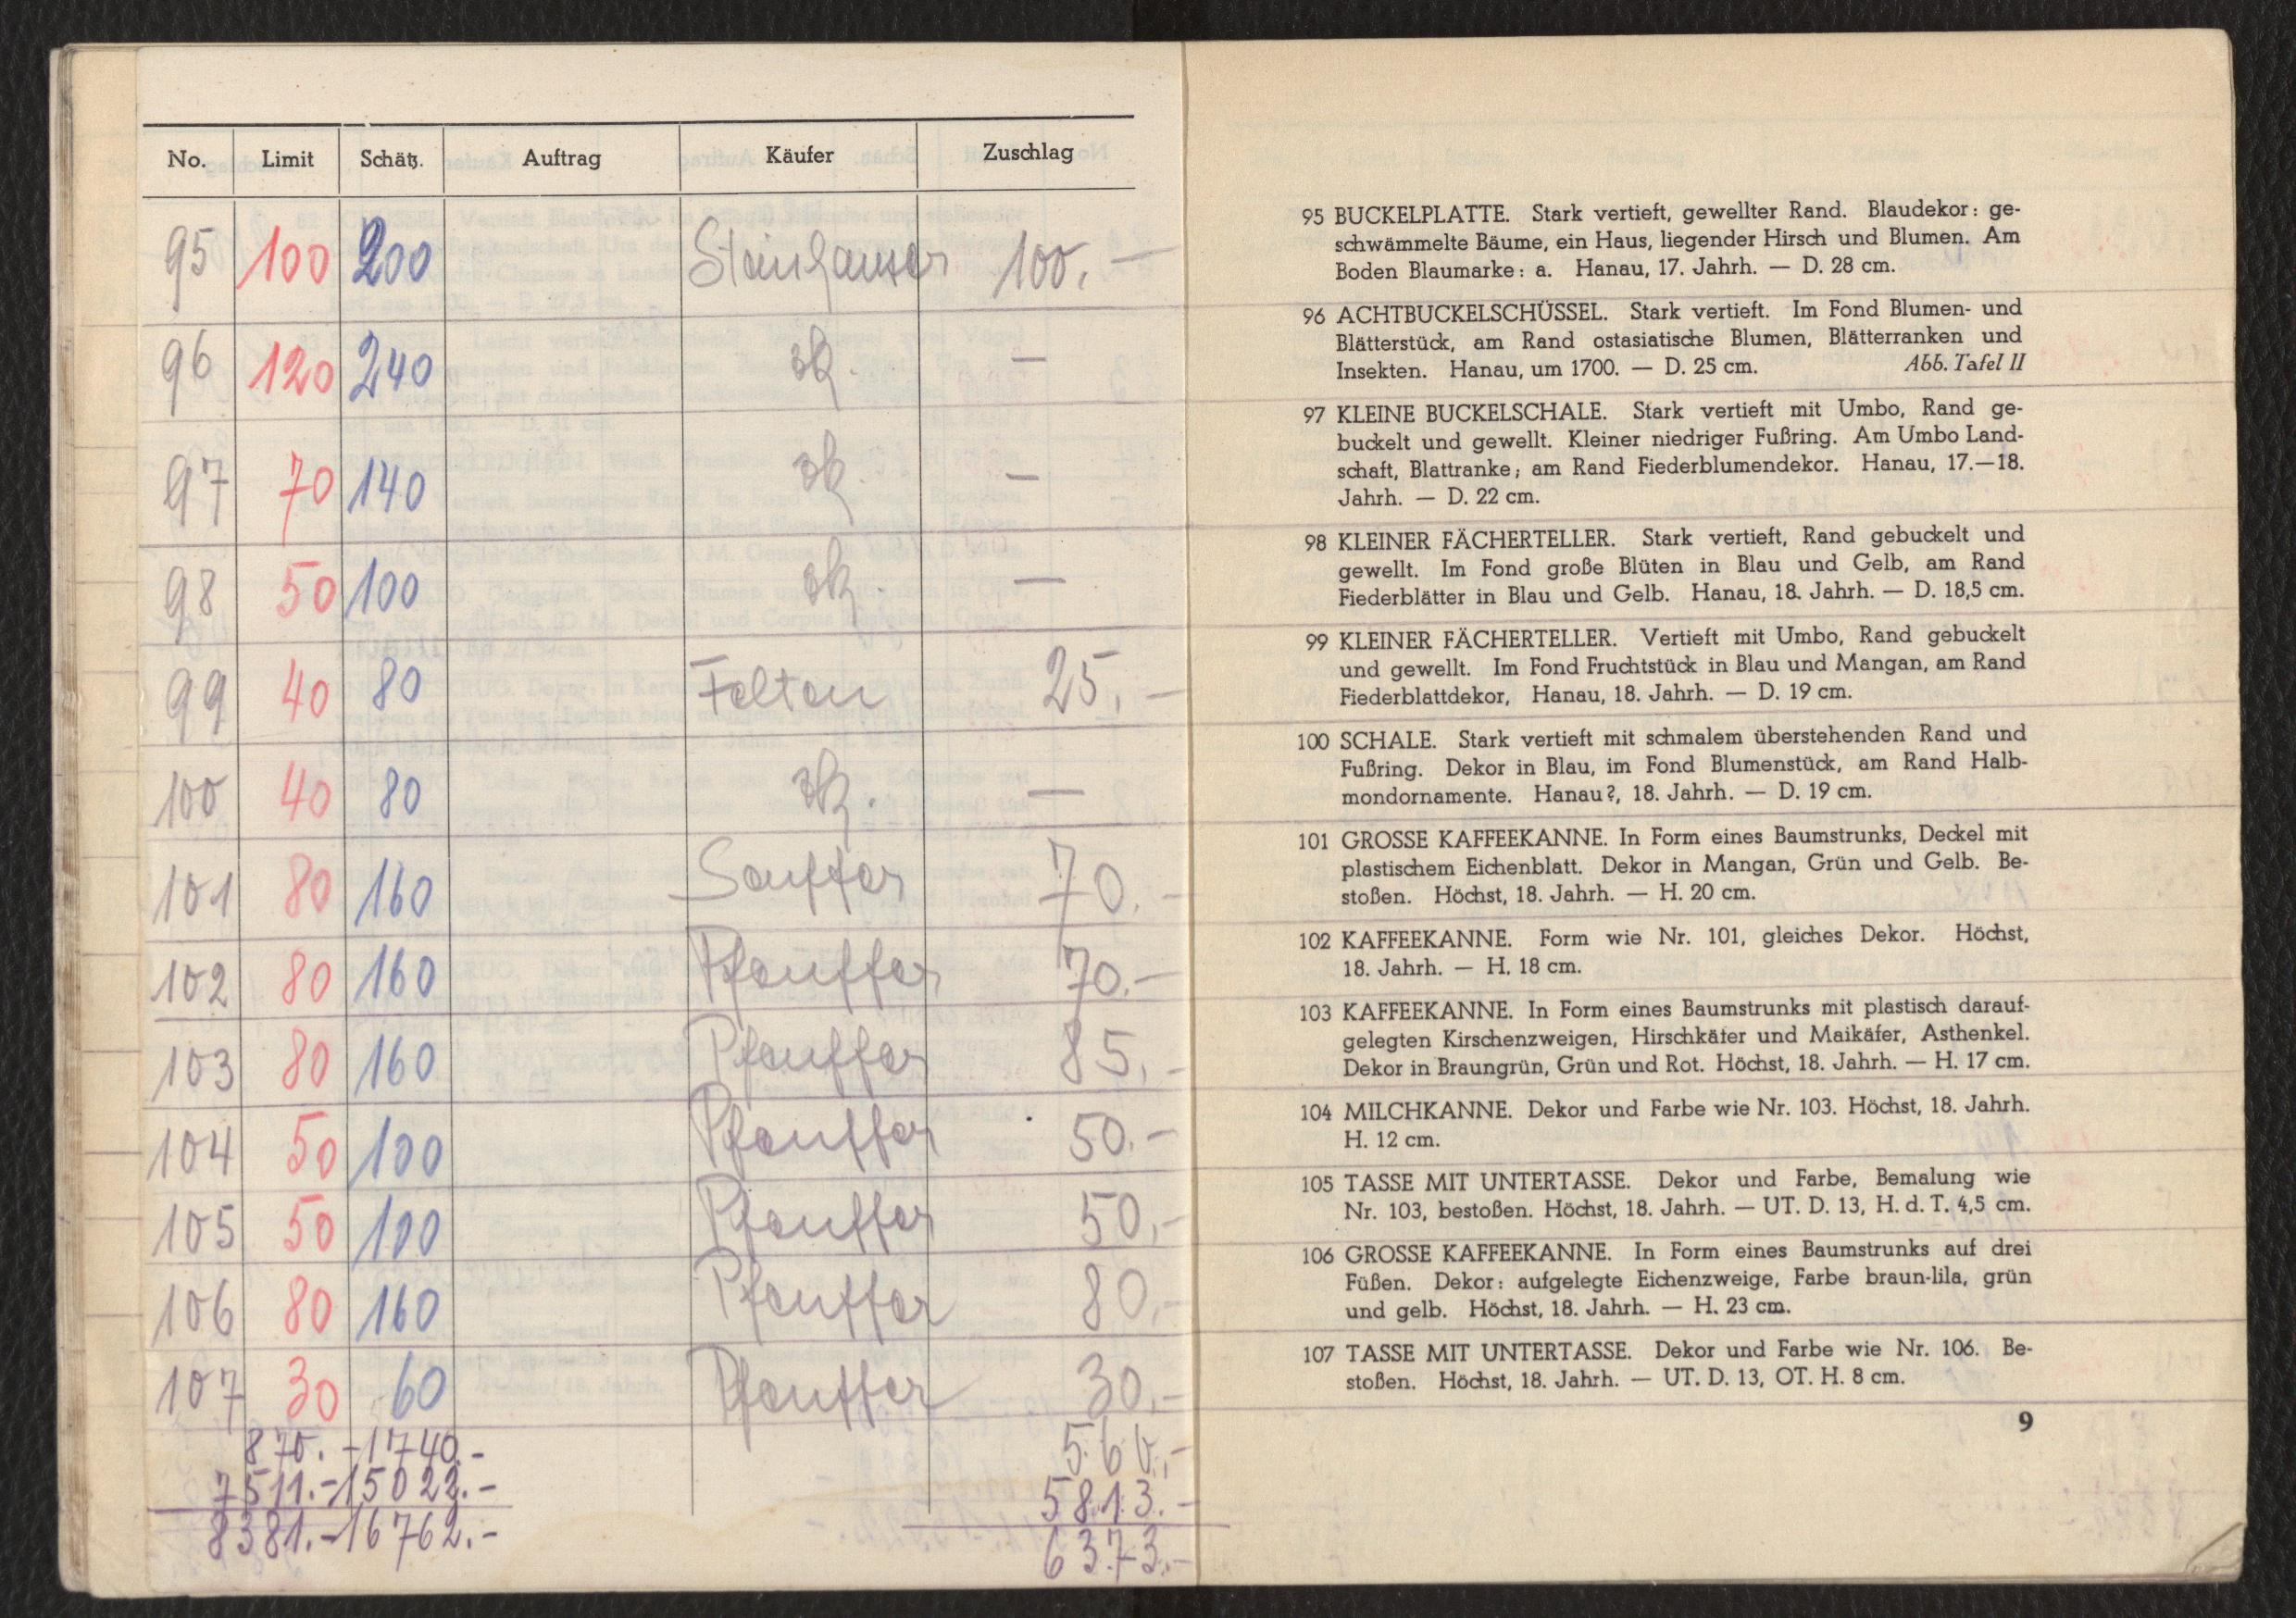 No. Limit Schätz. Auftrag Käufer Zuschlag
95 100 200 Steinhauser 100.—
96 120 240 zk. —
97 70 140 zk. —
98 50 100 zk. —
99 40 80 Felten 25.—
100 40 80 zk. —
101 80 160 70.—
102 80 160 Pfeuffer 70.—
103 80 160 Pfeuffer 85.—
104 50 100 Pfeuffer 50.—
105 50 100 Pfeuffer 50.—
106 80 160 Pfeuffer 80.—
107 30 60 Pfeuffer 30.—
870.- 1740.- 560.-
7511.- 15022.- 5813.-
8381.- 16762.- 6373.-
95 BUCKELPLATTE. Stark vertieft, gewellter Rand. Blaudekor: ge-
schwämmelte Bäume, ein Haus, liegender Hirsch und Blumen. Am
Boden Blaumarke: a. Hanau, 17. Jahrh. — D. 28 cm.
96 ACHTBUCKELSCHÜSSEL. Stark vertieft. Im Fond Blumen- und
Blätterstück, am Rand ostasiatische Blumen, Blätterranken und
Insekten. Hanau, um 1700. — D. 25 cm. Abb. Tafel II
97 KLEINE BUCKELSCHALE. Stark vertieft mit Umbo, Rand ge-
buckelt und gewellt. Kleiner niedriger Fußring. Am Umbo Land-
schaft, Blattranke; am Rand Fiederblumendekor. Hanau, 17.—18.
Jahrh. — D. 22 cm.
98 KLEINER FÄCHERTELLER. Stark vertieft, Rand gebuckelt und
gewellt. Im Fond große Blüten in Blau und Gelb, am Rand
Fiederblätter in Blau und Gelb. Hanau, 18. Jahrh. — D. 18,5 cm.
99 KLEINER FÄCHERTELLER. Vertieft mit Umbo, Rand gebuckelt
und gewellt. Im Fond Fruchtstück in Blau und Mangan, am Rand
Fiederblattdekor, Hanau, 18. Jahrh. — D. 19 cm.
100 SCHALE. Stark vertieft mit schmalem überstehenden Rand und
Fußring. Dekor in Blau, im Fond Blumenstück, am Rand Halb-
mondornamente. Hanau?, 18. Jahrh. — D. 19 cm.
101 GROSSE KAFFEEKANNE. In Form eines Baumstrunks, Deckel mit
plastischem Eichenblatt. Dekor in Mangan, Grün und Gelb. Be-
stoßen. Höchst, 18. Jahrh. — H. 20 cm.
102 KAFFEEKANNE. Form wie Nr. 101, gleiches Dekor. Höchst,
18. Jahrh. — H. 18 cm.
103 KAFFEEKANNE. In Form eines Baumstrunks mit plastisch darauf-
gelegten Kirschenzweigen, Hirschkäfer und Maikäfer, Asthenkel.
Dekor in Braungrün, Grün und Rot. Höchst, 18. Jahrh. — H. 17 cm.
104 MILCHKANNE. Dekor und Farbe wie Nr. 103. Höchst, 18. Jahrh.
H. 12 cm.
105 TASSE MIT UNTERTASSE. Dekor und Farbe, Bemalung wie
Nr. 103, bestoßen. Höchst, 18. Jahrh. — UT. D. 13, H. d. T. 4,5 cm.
106 GROSSE KAFFEEKANNE. In Form eines Baumstrunks auf drei
Füßen. Dekor: aufgelegte Eichenzweige, Farbe braun-lila, grün
und gelb. Höchst, 18. Jahrh. — H. 23 cm.
107 TASSE MIT UNTERTASSE. Dekor und Farbe wie Nr. 106. Be-
stoßen. Höchst, 18. Jahrh. — UT. D. 13, OT. H. 8 cm.
9